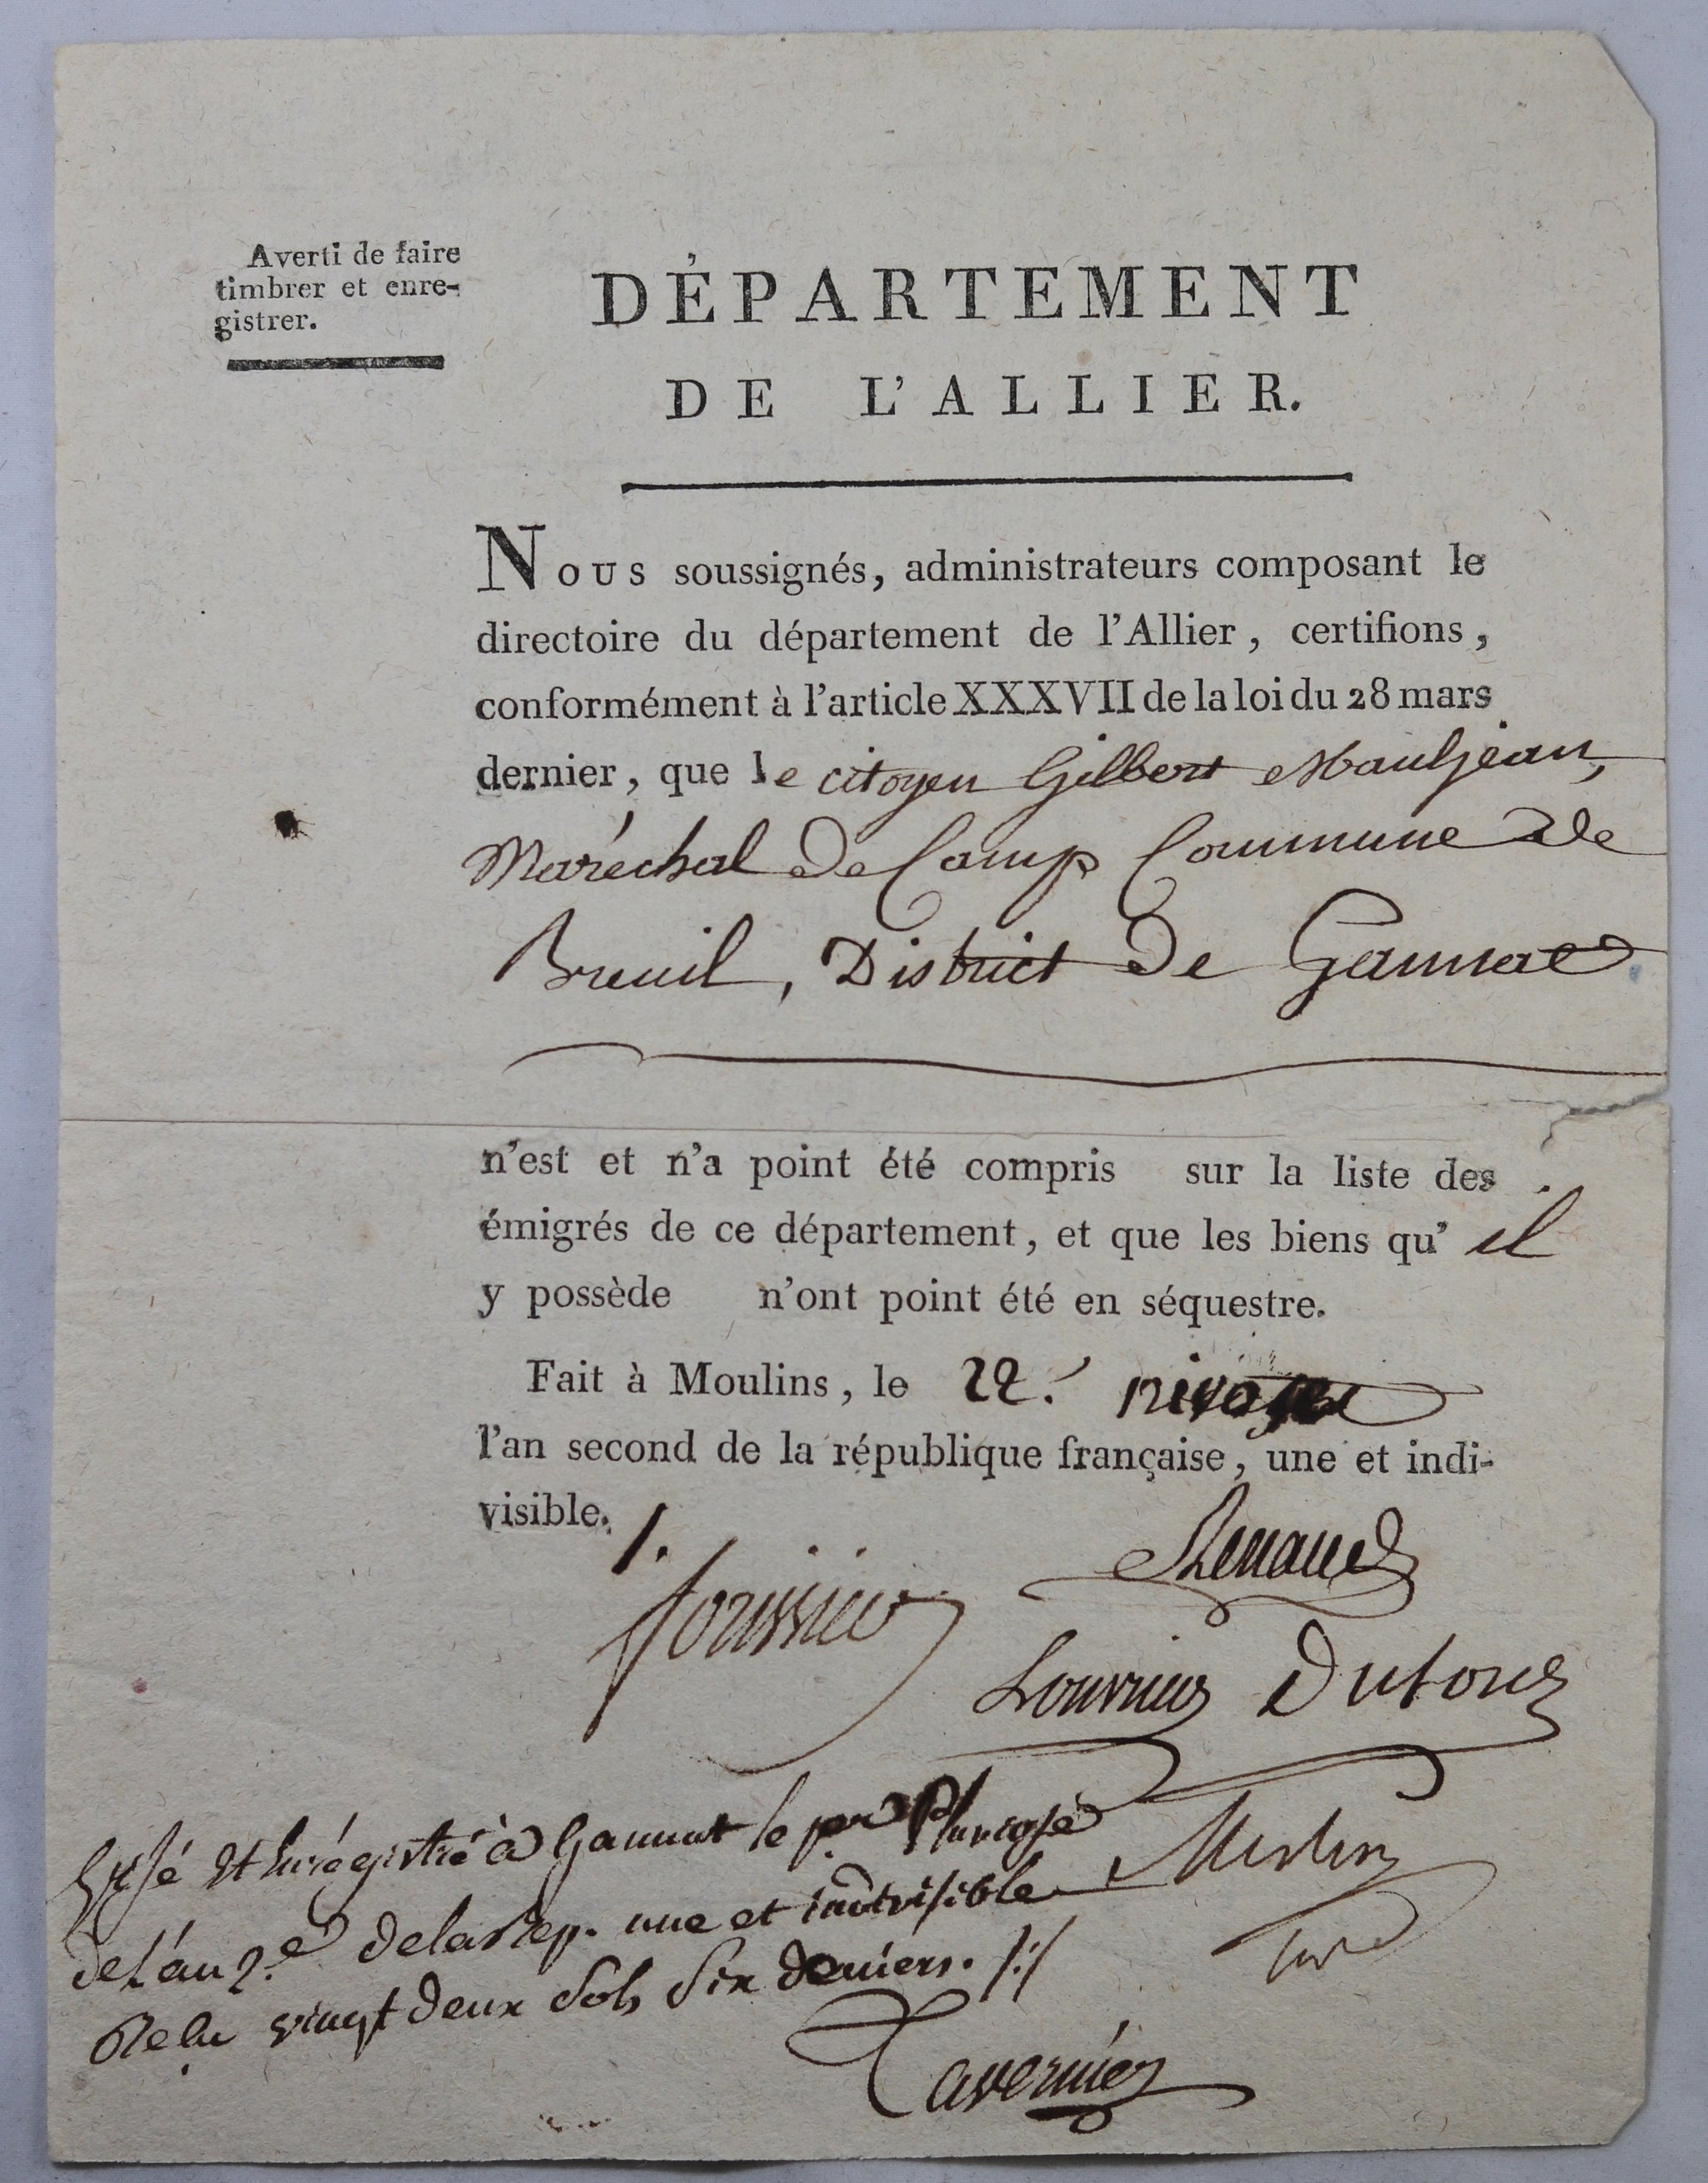 Averti de faire
timbrer et enre-
gistrer.
DÉPARTEMENT
DE L'ALLIER.
Nous soussignés, administrateurs composant le
directoire du département de l'Allier, certifions,
conformément à l'article XXXVII de la loi du 28 mars
dernier, que le citoyen Gilbert Mauljean,
Maréchal De Camp Commune De
Breuil, District De Gannat
n'est et n'a point été compris sur la liste des
émigrés de ce département, et que les biens qu' il
y possède n'ont point été en séquestre.
Fait à Moulins, le 22. nivose
l'an second de la république française, une et indi-
visible.
Renaud
Louvrier Dutour
et Enrégistré à Gannat le per Pluviose
De L'an 2.e De la Rep. une et indivisible
Relu vingt Deux Sols Six Deniers.
Merlin
Tavernier